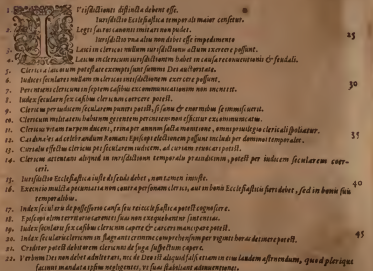 Iurisdictiones distinctæ debent esse.
Iurisdictio Ecclesiastica temporali maior censetur.
2. Leges sacros canones imitari non pudet. 25
Iurisdictio vna alia non debet esse impedimento
3. Laicus in clericos nullum iurisdictionis actum exercere possunt.
4. Laicus in clericum iurisdictionem habet in causa reconuentionis & feudali.
5. Clerici à laicorum potestate exempti sunt summi Dei auctoritate.
6. Iudices seculares nullam in clericos iurisdictionem exercere possunt. 30
7. Percutiens clericum in septem casibus excommunicationem non incurrit.
8. Iudex secularis sex casibus clericum coercere potest.
9. Clericus per iudicem secularem puniri potest, si suis & enormibus se immiscuerit.
10. Clericum militarem habitum gerentem percutiens non efficitur excommunicatus.
11. Clericus vitam turpem ducens, trina per annum facta monitione, omni priuilegio clericali spoliatur. 35
12. Cardinales ad celebrandum Romani Episcopi electionem possunt includi per dominos temporales.
13. Citatus effectus clericus per secularem iudicem, ad curiam reuocari potest.
14. Clericus attentans aliquid in iurisdictionis temporalis præiudicium, potest per iudicem secularem coerceri.
15. Iurisdictio Ecclesiastica iuste di debet, non temere inuisse.
16. Executio mulcta pecuniaria non contra personam clerici, aut in bonis Ecclesiasticis fieri debet, sed in bonis suis temporalibus. 40
17. Index secularis de possessorio causa seu rei ecclesiastica potest cognoscere.
18. Episcopi olim territorio carentes suas non exequebantur sententias.
19. Iudex secularis sex casibus clericum capere & carceri mancipare potest.
20. Index secularis clericum in flagranti crimine comprehensum per viginti horas detinere potest. 45
21. Creditor potest debitorem clericum de fuga suspectum capere.
22. Verbum Dei non debet adulterari, nec de Deo est aliquid falsi etiam in eius laudem astruendum, quod plerique faciunt mandatis ipsius negligentes, vt suas stabiliant adinuentiones.